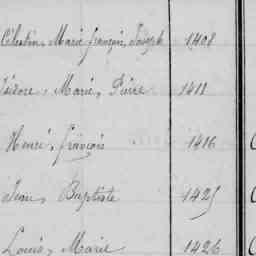 Célestin, Marie françois, Joseph 1408
Isidore, Marie, Pierre 1411
Henri, françois 1416
Jean, Baptiste 1425
Louis, Marie 1426